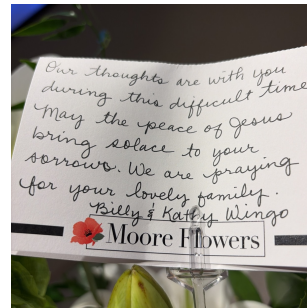 Our thoughts are with you
during this difficult time
May the peace of Jesus
bring solace to your
sorrows. We are praying
for your lovely family.
Billy & Kathy Wingo
Moore Flowers